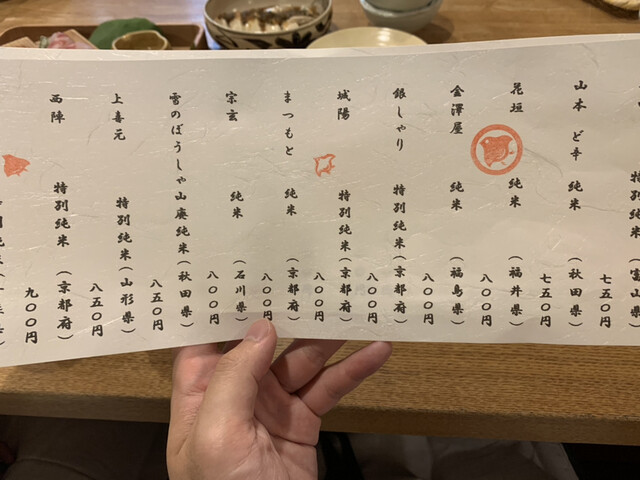 特別純米（富山県）
七五〇円
山本 ど辛 純米（秋田県）
七五〇円
花垣 純米（福井県）
八〇〇円
金澤屋 純米（福島県）
八〇〇円
銀しゃり 特別純米（京都府）
八〇〇円
城陽 特別純米（京都府）
八〇〇円
まつもと 純米（京都府）
八〇〇円
宗玄 純米（石川県）
八〇〇円
雪のぼうしゃ山廃純米（秋田県）
八五〇円
上喜元 特別純米（山形県）
八五〇円
西陣 特別純米（京都府）
九〇〇円